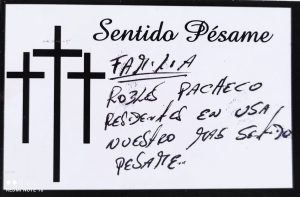 Sentido Pésame
FAMILIA
ROBLES PACHECO
RESIDENTES EN USA,
NUESTRO MAS SENTIDO
PESAME..
REDMI NOTE 10